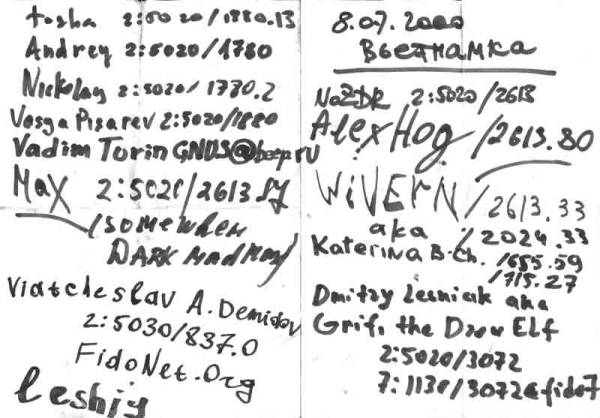 tosha 2:5020/1880.13
Andrey 2:5020/1780
Nickolay 2:5020/1730.2
Vasya Pisarev 2:5020/1880
Vadim Torin GNUS@beep.ru
Max 2:5020/2613
/somewhen
DARK
Viatcheslav A. Demidov
2:5030/837.0
FidoNet.Org
leshiy
8.07.2000
Вьетнамка
NoZDR 2:5020/2613
AlexHog /2613.80
WiVERN /2613.33
aka /2024.33
Katerina B-Ch. /1655.59
/715.27
Dmitry Lesniak aka
Grifi the Drow Elf
2:5020/3072
7:1130/3072@fido7